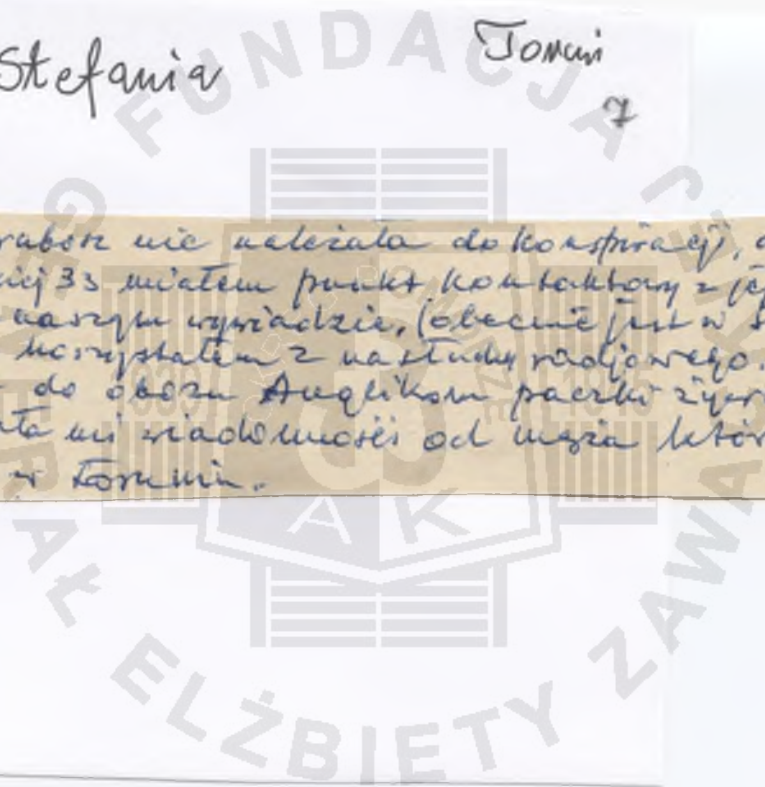 Stefania Toruń
7
nie należała do konspiracji,
33 miałem punkt kontaktowy z jej
naszym wywiadzie, (obecnie jest w
korzystałem z nasłuchu radjowego.
do obozu Anglikom paczki
mi wiadomości od męża
w Toruniu.
FUNDACJA GENERAŁ ELŻBIETY ZAWA
1939 1945
AK